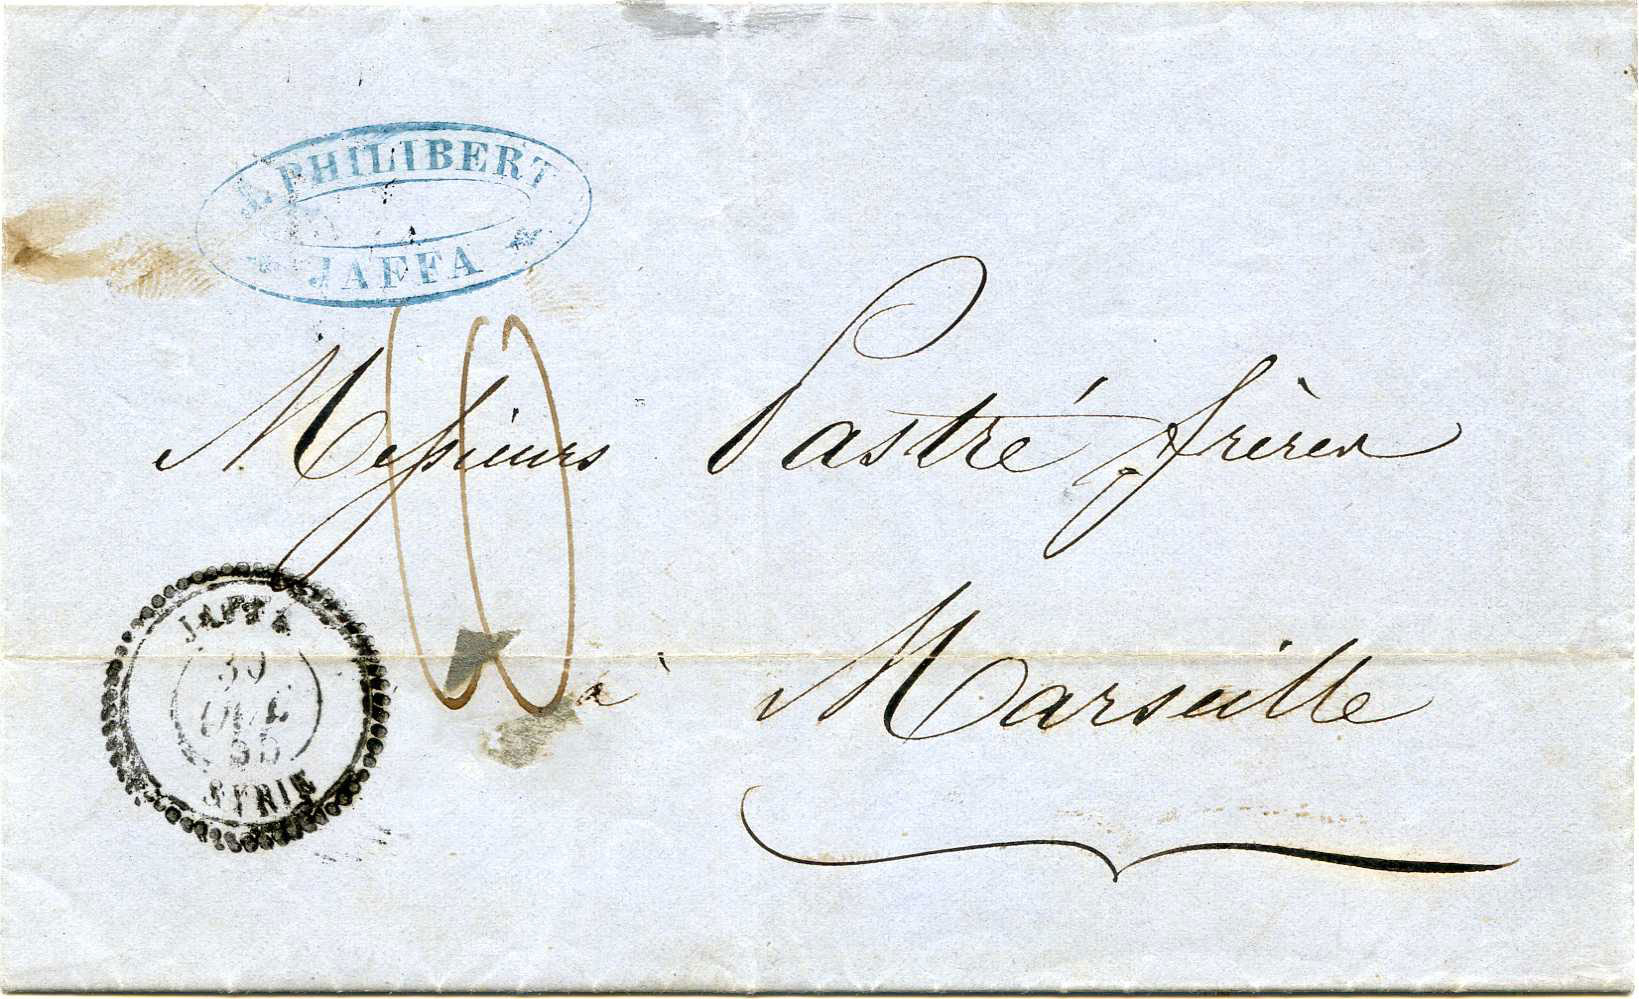 J. PHILIBERT
JAFFA
10
Messieurs Pastré frères
à Marseille
JAFFA
30
SYRIE